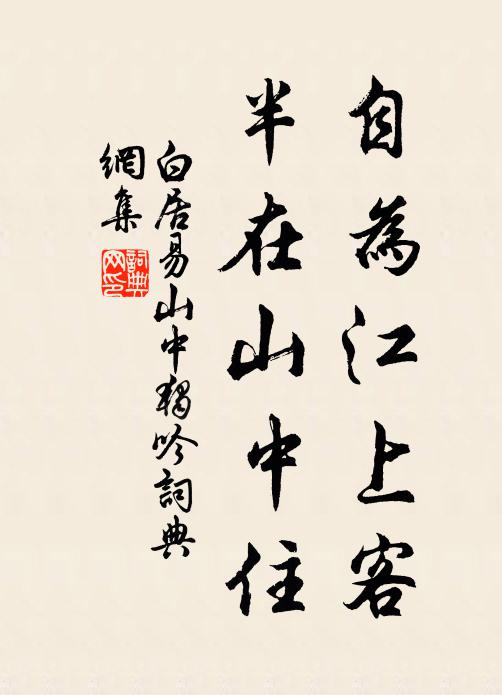 自為江上客
半在山中住
白居易山中獨吟詞典
網集
詞典
网印